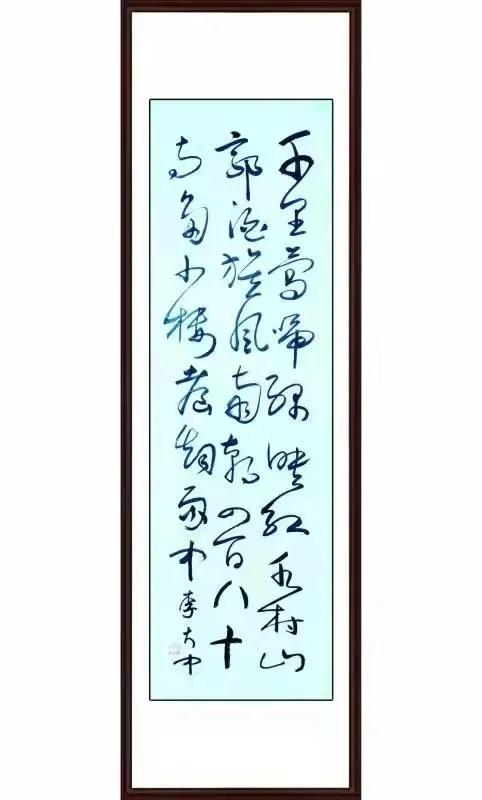 千里鶯啼綠映紅水村山
郭酒旗風南朝四百八十
寺多少樓臺烟雨中李大中